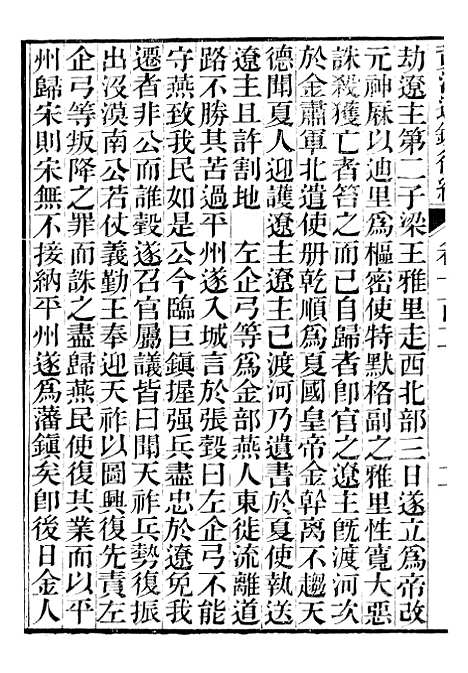 劫遼主第二子梁王雅里走西北部三日遂立爲帝改
元神厤以迪里爲樞密使特默格副之雅里性寬大惡
誅殺獲亡者笞之而已自歸者卽官之遼主旣渡河次
於金肅軍北遣使册乾順爲夏國皇帝金幹离不趨天
德聞夏人迎護遼主遼主已渡河乃遺書於夏使執送
遼主且許割地　左企弓等爲金部燕人東徙流離道
路不勝其苦過平州遂入城言於張瑴曰左企弓不能
守燕致我民如是公今臨巨鎭握强兵盡忠於遼免我
遷者非公而誰瑴遂召官屬議皆曰聞天祚兵勢復振
出沒漠南公若仗義勤王奉迎天祚以圖興復先責左
企弓等叛降之罪而誅之盡歸燕民使復其業而以平
州歸宋則宋無不接納平州遂爲藩鎭矣卽後日金人